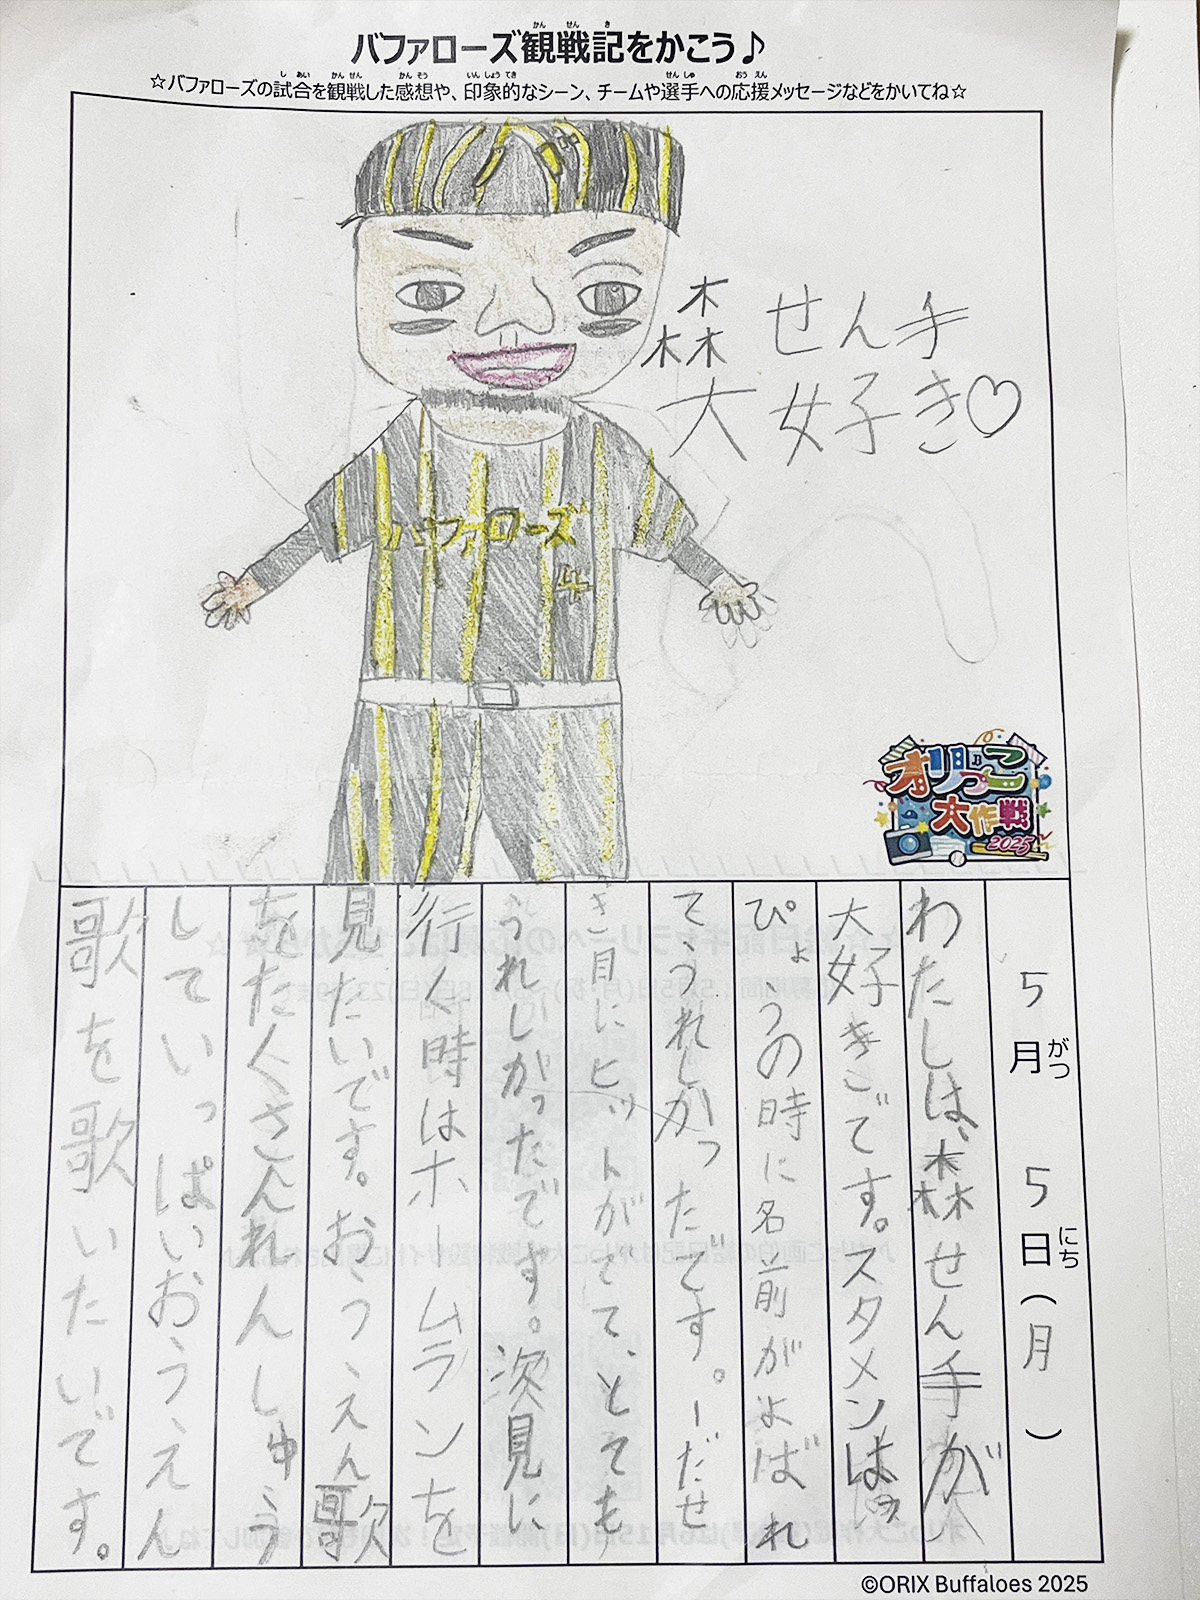 バファローズ観戦記をかこう♪
☆バファローズの試合を観戦した感想や、印象的なシーン、チームや選手への応援メッセージなどをかいてね☆
森せん手
大好き♡
バファローズ
4
オリっこ
大作戦
2025
5月5日(月)
わたしは、森せん手が
大好きです。スタメンはっ
ぴょうの時に名前がよばれ
てうれしかったです。一だせ
き目にヒットがでて、とても
うれしかったです。次見に
行く時はホームランを
見たいです。おうえん歌
をたくさんれんしゅう
していっぱいおうえん
歌を歌いたいです。
©ORIX Buffaloes 2025